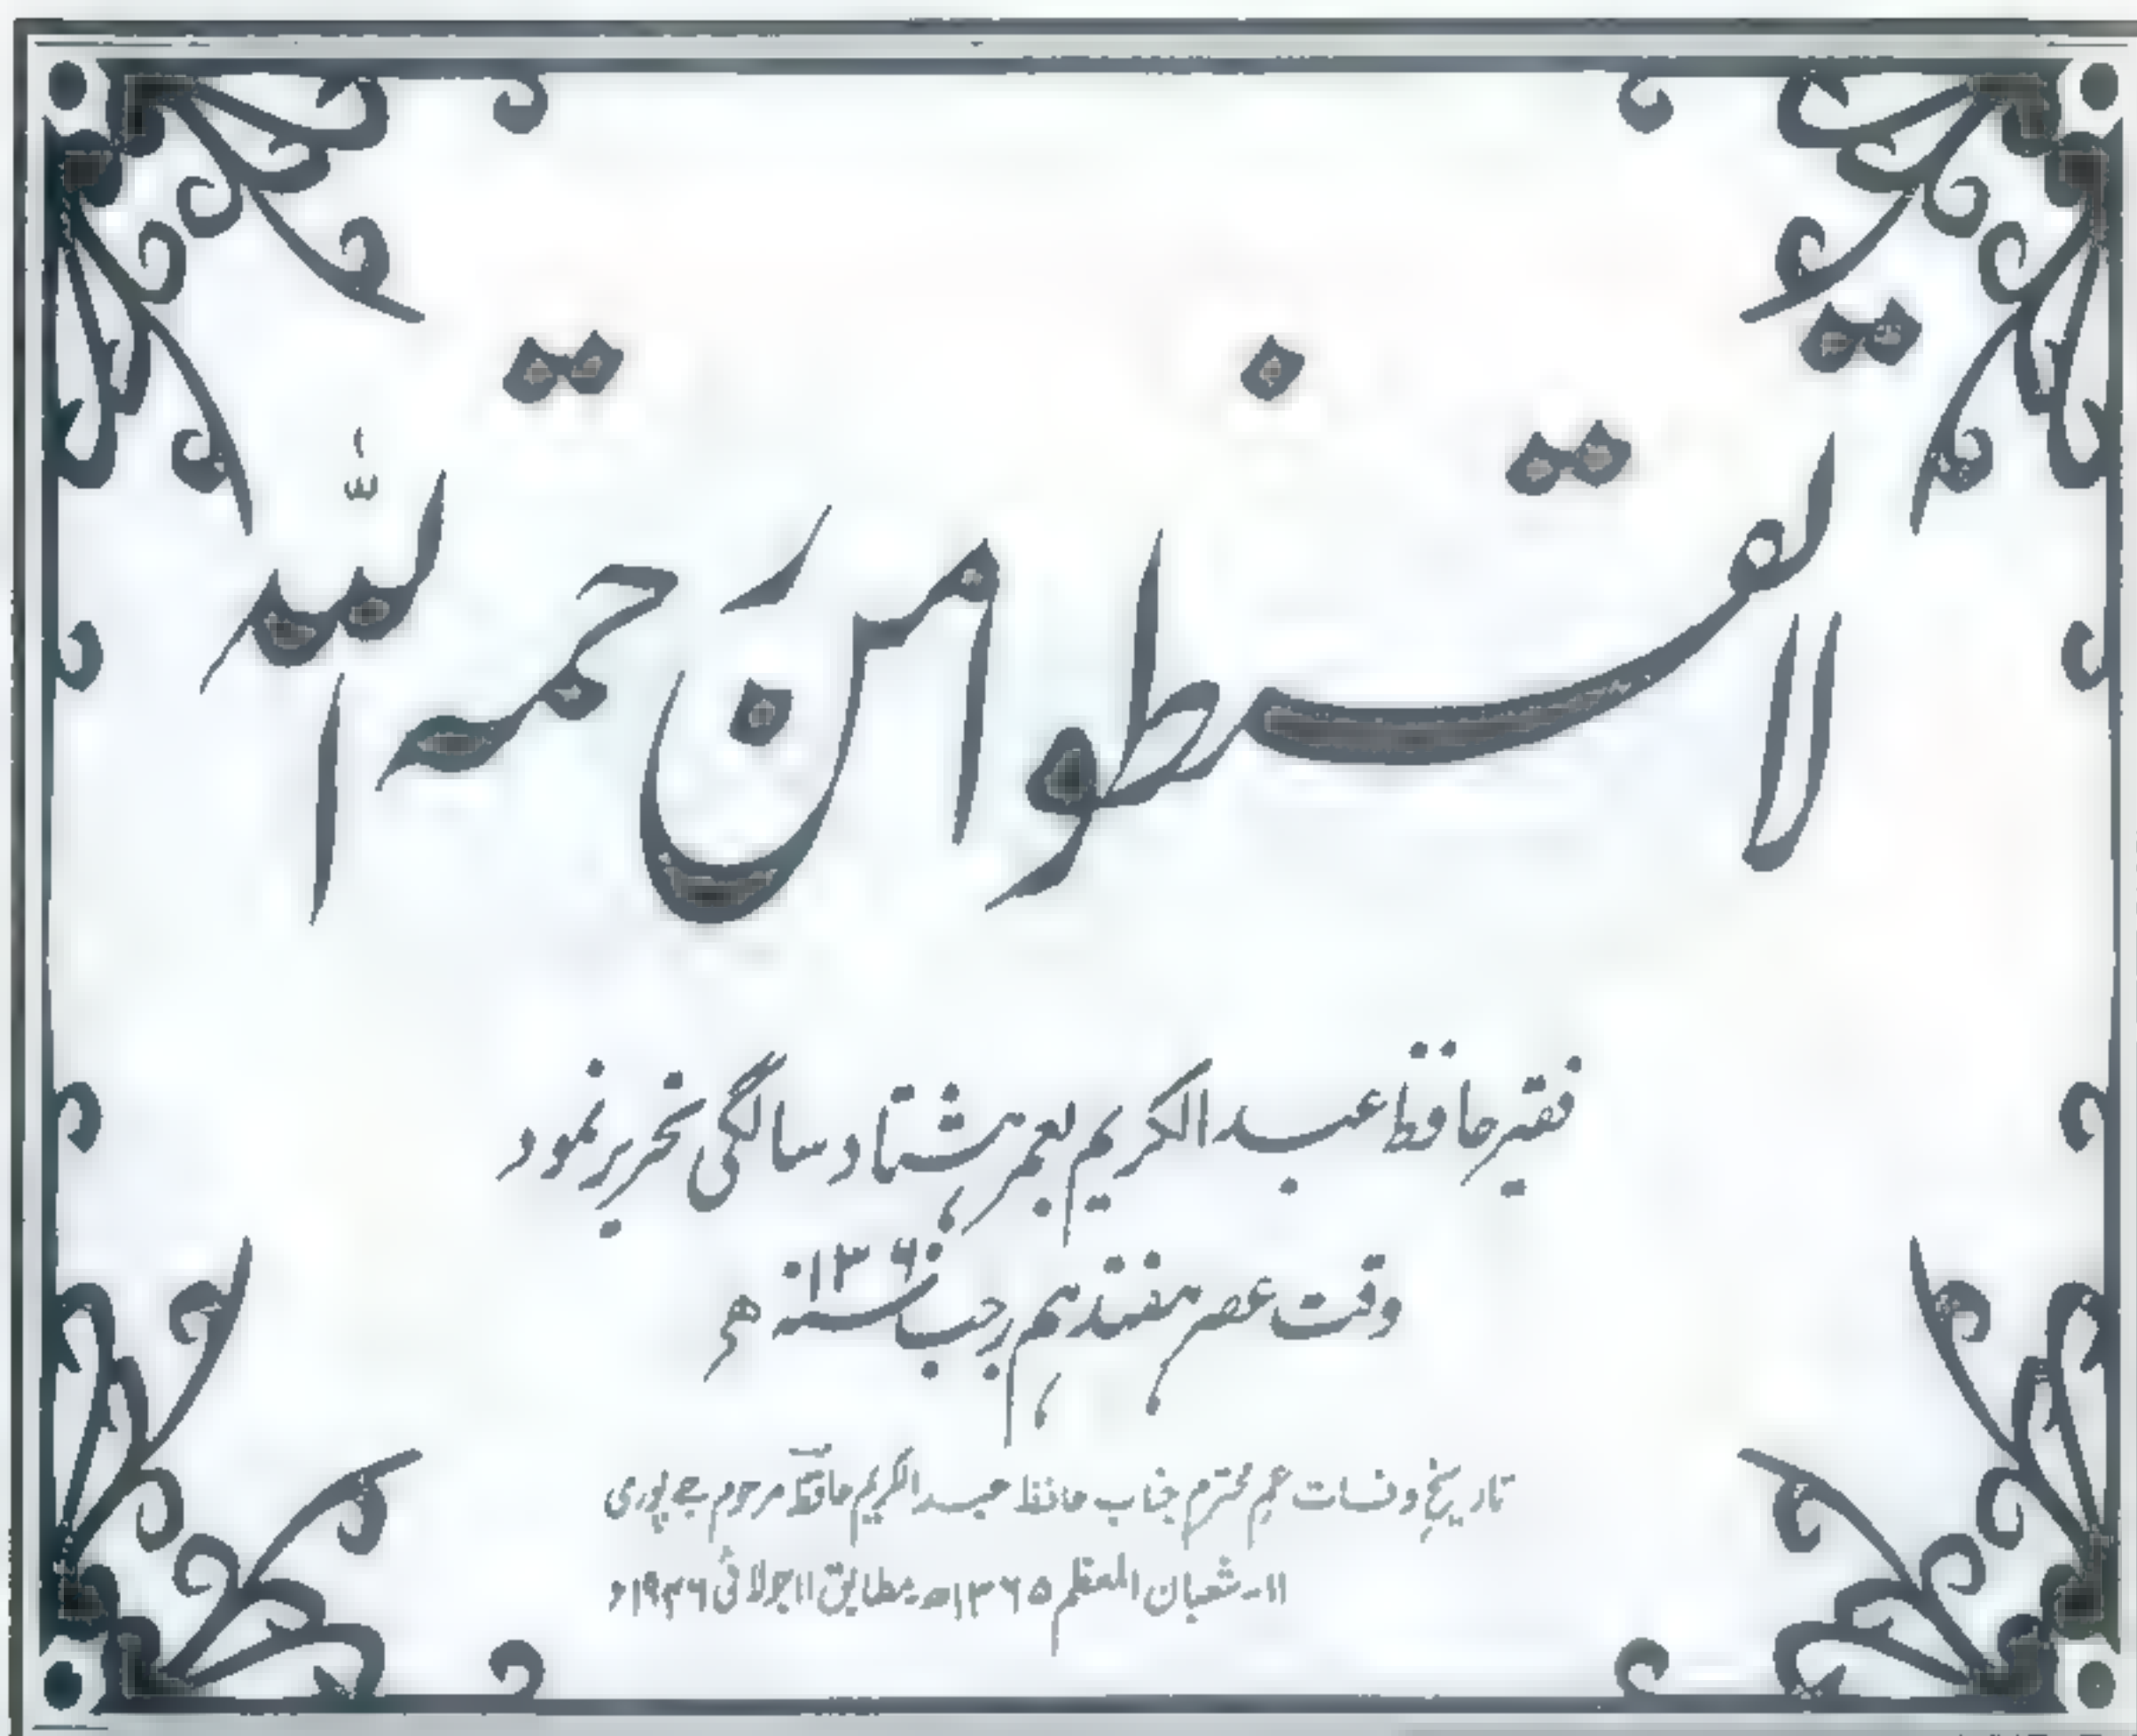 لا تقنطوا من رحمة الله
فقیر حافظ عبدالکریم بعمر ہشتاد سالگی تحریر نمود
وقت عصر ہفتدہم رجب سنہ ۱۳۶۰ ھ
تاریخ وفات عم محترم جناب حافظ عبدالکریم حافظؔ مرحوم جے پوری
۱۱۔ شعبان المعظم ۱۳۶۵ھ۔ مطابق ۱۱ جولائی ۱۹۴۶ء